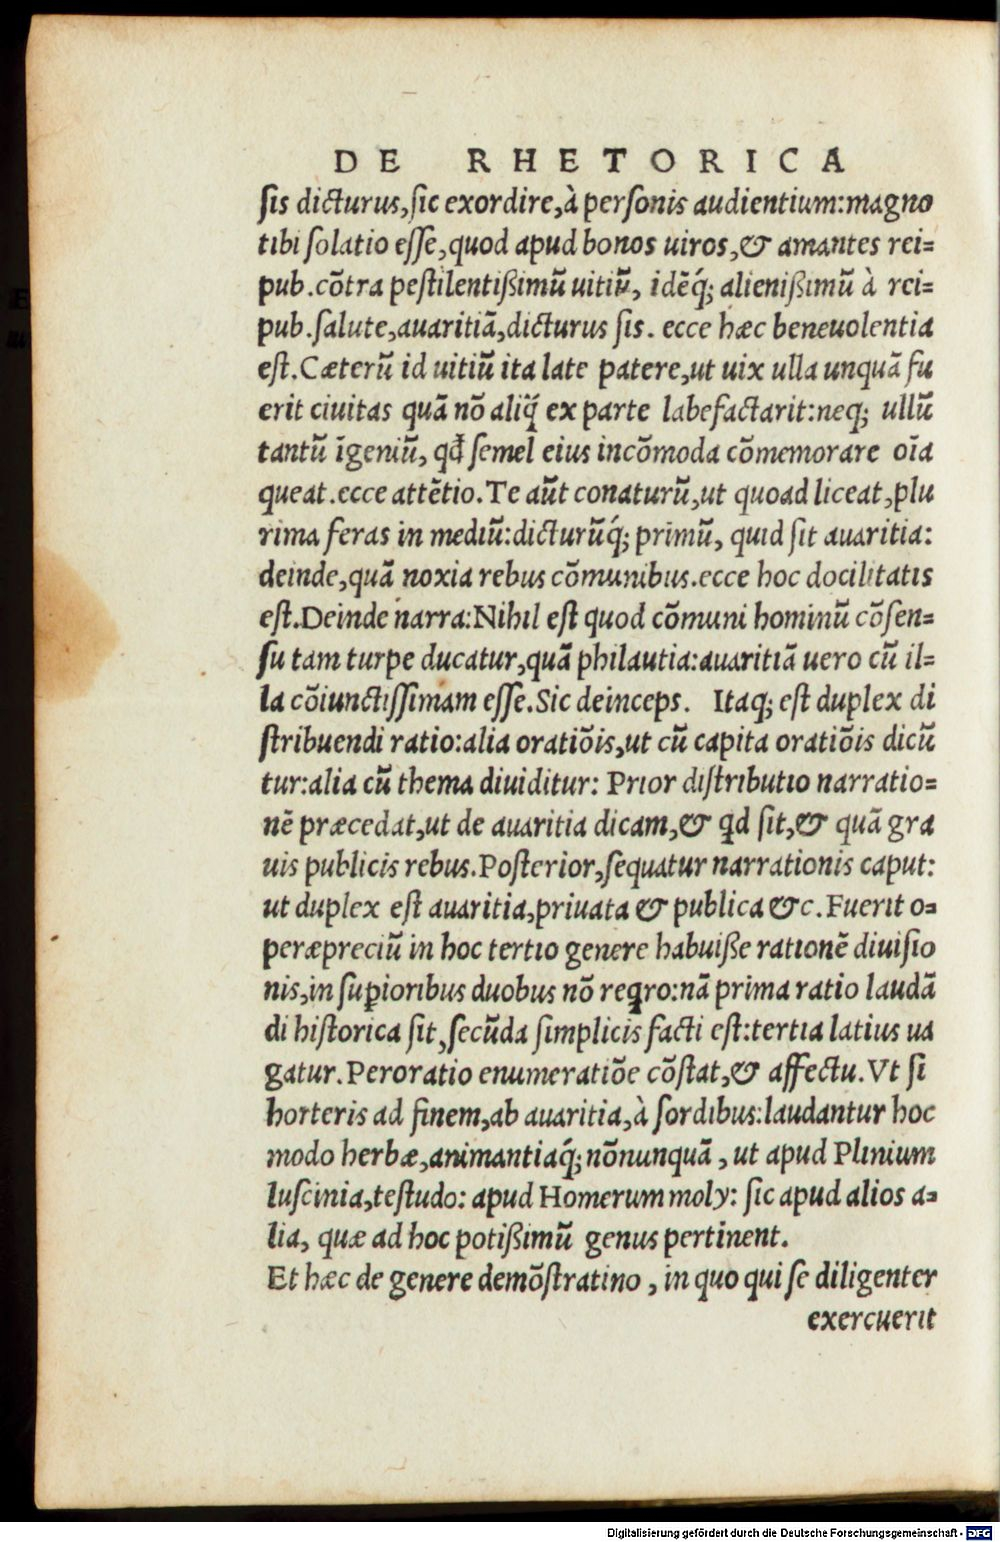 DE RHETORICA
sis dicturus, sic exordire, à personis audientium: magno
tibi solatio esse, quod apud bonos uiros, & amantes rei=
pub. cõtra pestilentißimũ uitiũ, idẽq́; alienißimũ à rei=
pub. salute, auaritiã, dicturus sis. ecce hæc beneuolentia
est. Cæterũ id uitiũ ita late patere, ut uix ulla unquã fu
erit ciuitas quã nõ aliq̃ ex parte labefactarit: neq; ullũ
tantũ ĩgeniũ, qđ semel eius incõmoda cõmemorare oĩa
queat. ecce attẽtio. Te aũt conaturũ, ut quoad liceat, plu
rima feras in mediũ: dicturũq́; primũ, quid sit auaritia:
deinde, quã noxia rebus cõmunibus. ecce hoc docilitatis
est. Deinde narra: Nihil est quod cõmuni hominũ cõsen=
su tam turpe ducatur, quã philautia: auaritiã uero cũ il=
la cõiunctissimam esse. Sic deinceps. Itaq; est duplex di
stribuendi ratio: alia oratiõis, ut cũ capita oratiõis dicũ
tur: alia cũ thema diuiditur: Prior distributio narratio=
nẽ præcedat, ut de auaritia dicam, & qd sit, & quã gra
uis publicis rebus. Posterior, sequatur narrationis caput:
ut duplex est auaritia, priuata & publica &c. Fuerit o=
peræpreciũ in hoc tertio genere habuiße rationẽ diuisio
nis, in suꝑioribus duobus nõ reqro: nã prima ratio laudã
di historica sit, secũda simplicis facti est: tertia latius ua
gatur. Peroratio enumeratiõe cõstat, & affectu. Vt si
horteris ad finem, ab auaritia, à sordibus: laudantur hoc
modo herbæ, animantiaq́; nõnunquã, ut apud Plinium
luscinia, testudo: apud Homerum moly: sic apud alios a=
lia, quæ ad hoc potißimũ genus pertinent.
Et hæc de genere demõstratino, in quo qui se diligenter
exercuerit
Digitalisierung gefördert durch die Deutsche Forschungsgemeinschaft - DFG